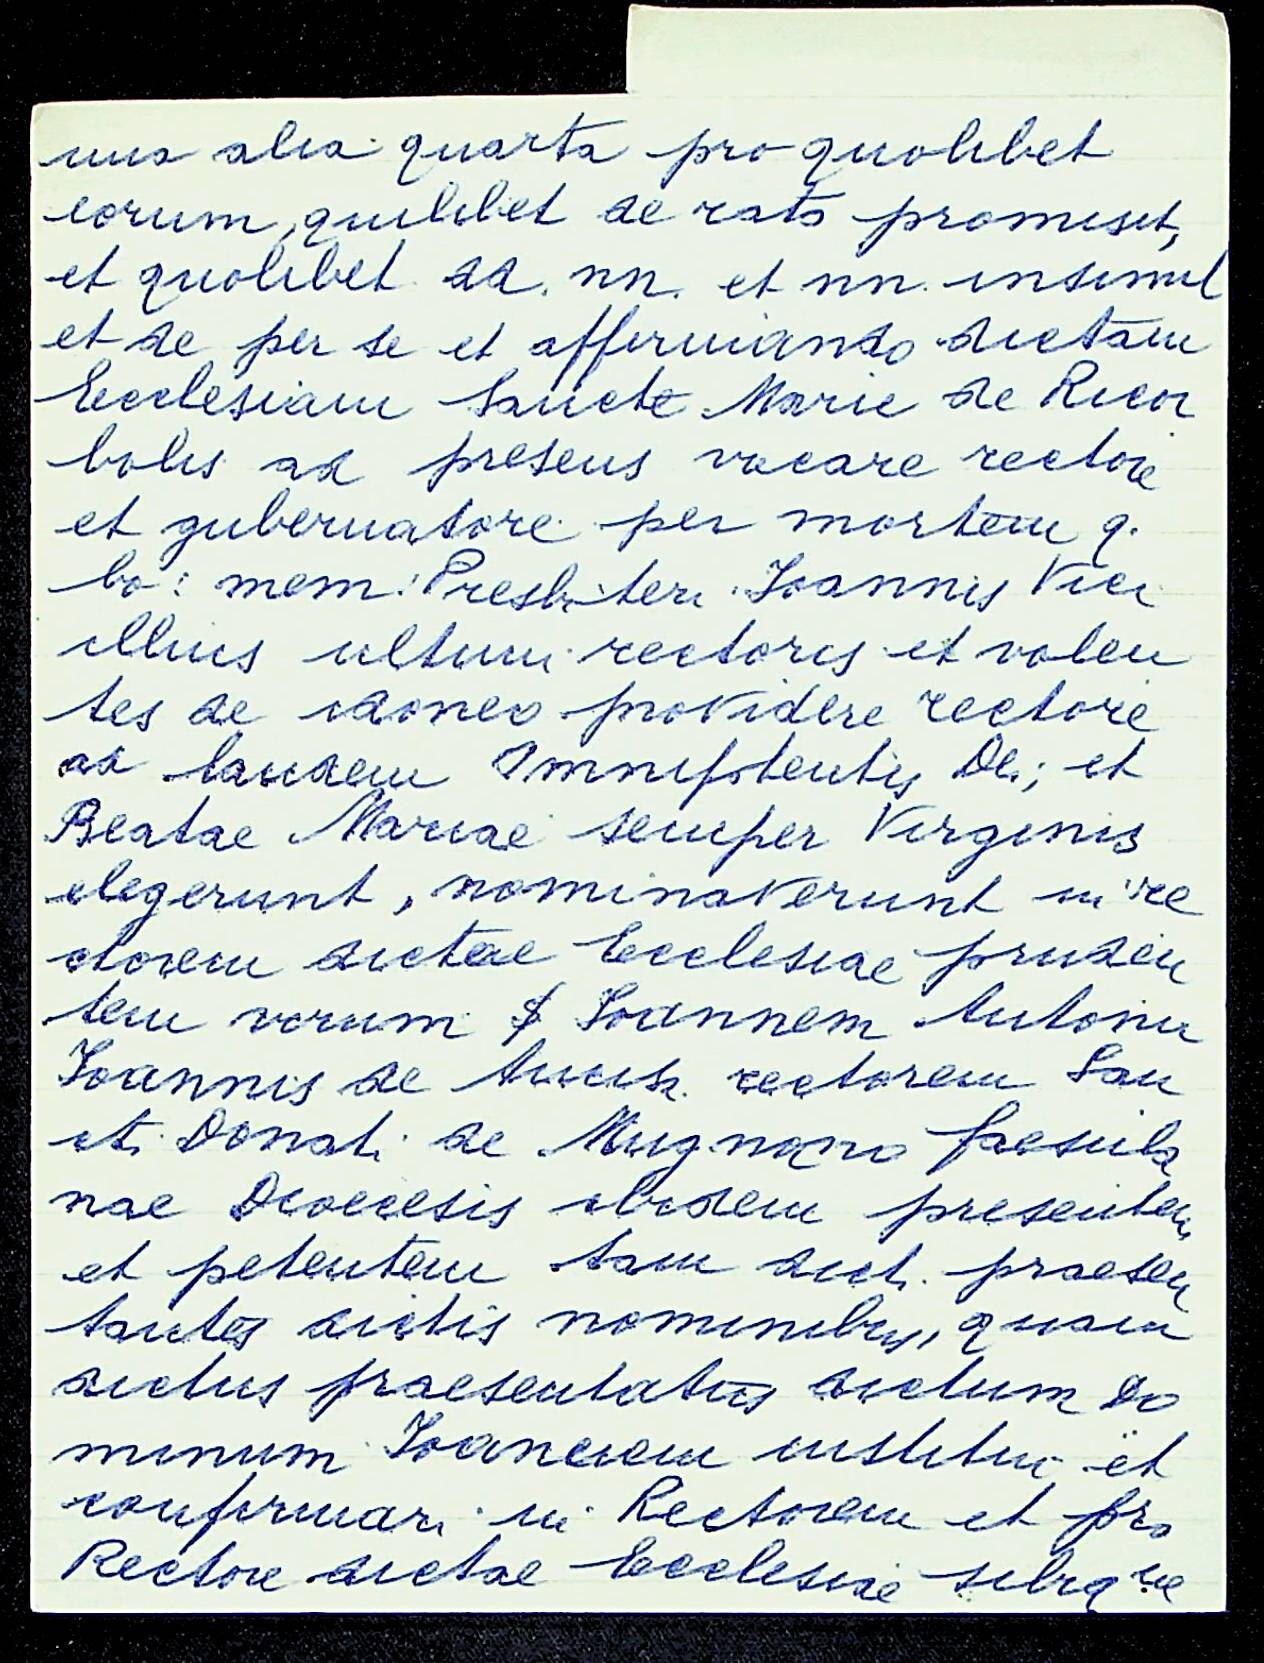 una alia quarta pro quolibet
eorum, quilibet de rato promisit,
et quolibet dd. nn. et nn. insimul
et de per se et affirmando dictam
Ecclesiam Sancte Marie de Ricor
bolis ad presens vacare rectore
et gubernatore per mortem q.
bo: mem: Presbiteri Joannis Vici
illius ultimi rectoris et volen
tes de idoneo providere rectore
ad laudem Omnipotentis Dei; et
Beatae Mariae semper Virginis
elegerunt, nominaverunt in re
ctorem dictae Ecclesiae pruden
tem virum Joannem Antoniu
Joannis de rectorem San
cti Donati de Mugnano faesula
nae Dioecesis ibidem presentem
et petentem tam dict. praesen
tantes dictis nominibus, quam
dictus praesentatus dictum Do
minum Joannem institui et
confirmari in Rectorem et pro
Rectore dictae Ecclesiae